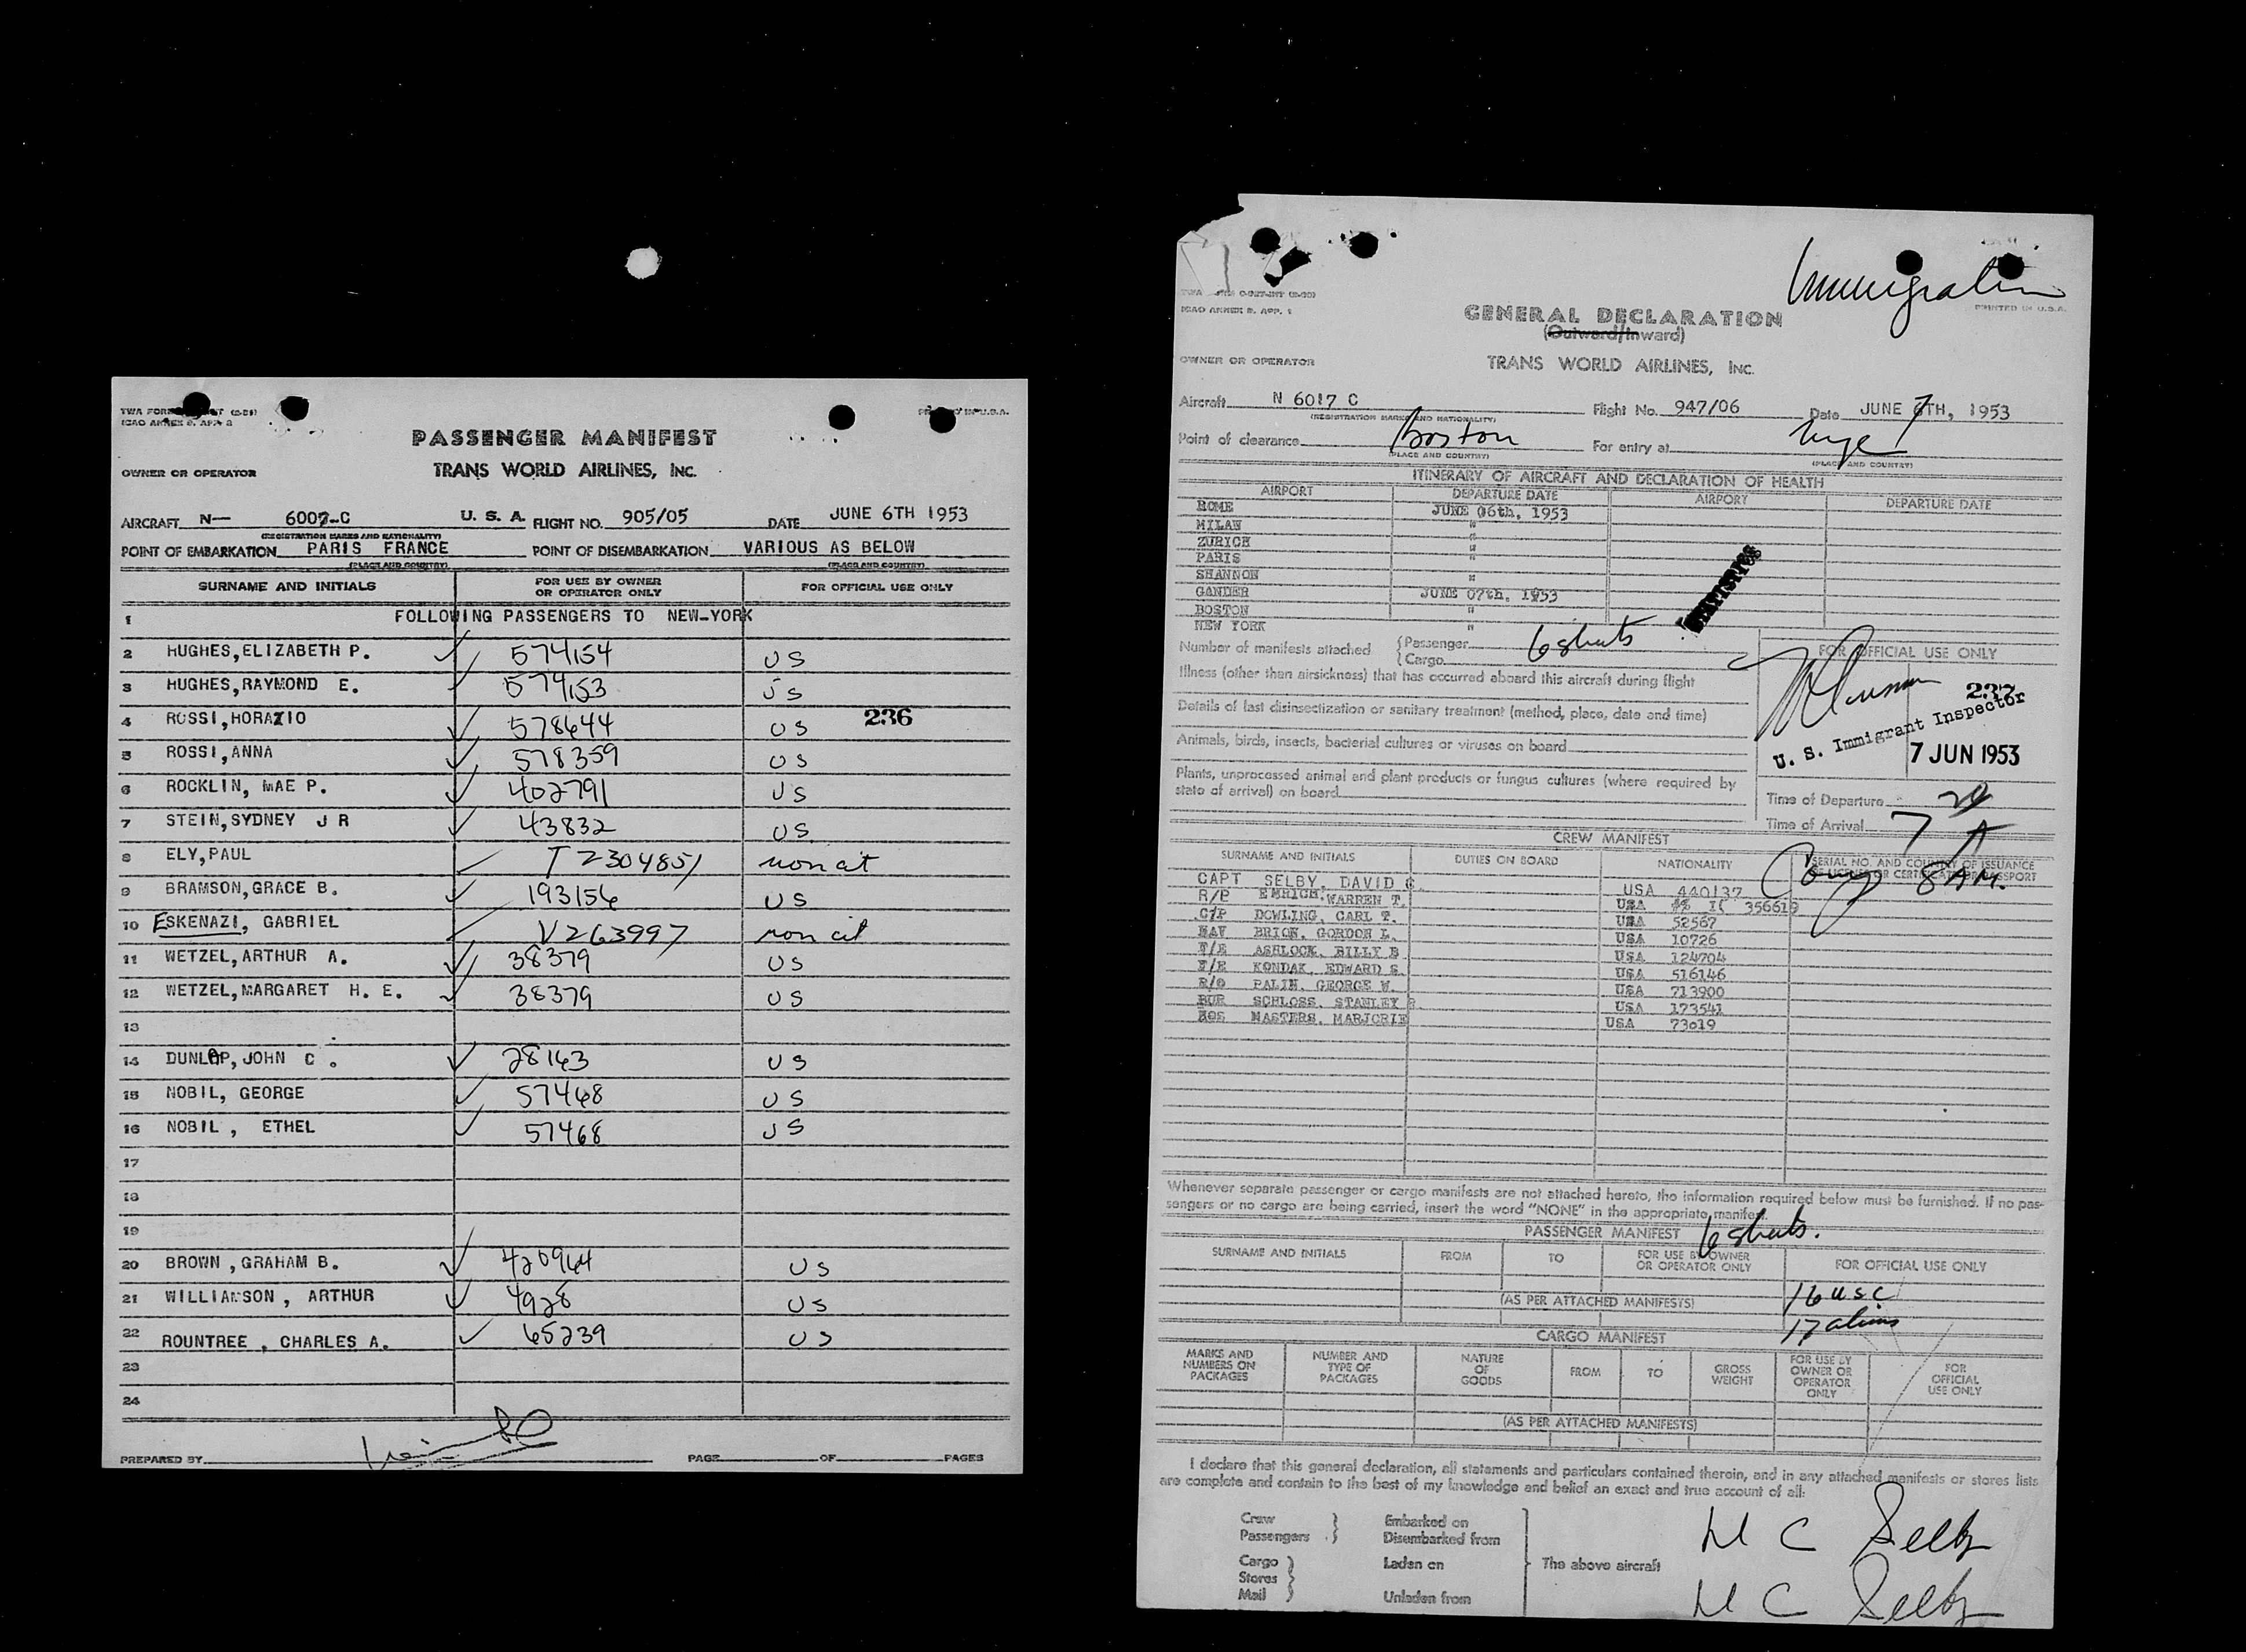 PASSENGER MANIFEST
OWNER OR OPERATOR TRANS WORLD AIRLINES, INC.
AIRCRAFT N— 6007-C U. S. A. FLIGHT NO. 905/05 DATE JUNE 6TH 1953
(REGISTRATION MARKS AND NATIONALITY)
POINT OF EMBARKATION PARIS FRANCE POINT OF DISEMBARKATION VARIOUS AS BELOW
(PLACE AND COUNTRY) (PLACE AND COUNTRY)
SURNAME AND INITIALS FOR USE BY OWNER OR OPERATOR ONLY FOR OFFICIAL USE ONLY
1 FOLLOWING PASSENGERS TO NEW-YORK
2 HUGHES,ELIZABETH P. 574154 US
3 HUGHES,RAYMOND E. 574153 US
4 ROSSI,HORAZIO 578644 US 236
5 ROSSI,ANNA 578359 US
6 ROCKLIN, MAE P. 402791 US
7 STEIN,SYDNEY J R 43832 US
8 ELY,PAUL T 2304851 non cit
9 BRAMSON,GRACE B. 193156 US
10 ESKENAZI, GABRIEL V263997 non cit
11 WETZEL,ARTHUR A. 38379 US
12 WETZEL,MARGARET H. E. 38379 US
13
14 DUNLAP,JOHN C . 28163 US
15 NOBIL, GEORGE 57468 US
16 NOBIL , ETHEL 57468 US
17
18
19
20 BROWN ,GRAHAM B. 420964 US
21 WILLIAMSON , ARTHUR 4928 US
22 ROUNTREE , CHARLES A. 65239 US
23
24
PREPARED BY PAGE OF PAGES
Immigration
ICAO ANNEX 9. APP. 1 PRINTED IN U.S.A.
GENERAL DECLARATION
(Outward/Inward)
OWNER OR OPERATOR TRANS WORLD AIRLINES, INC.
Aircraft N 6017 C Flight No. 947/06 Date JUNE 7TH, 1953
(REGISTRATION MARKS AND NATIONALITY)
Point of clearance Boston For entry at
(PLACE AND COUNTRY) (PLACE AND COUNTRY)
ITINERARY OF AIRCRAFT AND DECLARATION OF HEALTH
AIRPORT DEPARTURE DATE AIRPORT DEPARTURE DATE
ROME JUNE 06th, 1953
MILAN "
ZURICH "
PARIS "
SHANNON "
GANDER JUNE 07th, 1953
BOSTON "
NEW YORK "
Number of manifests attached { Passenger 6 sheets
{ Cargo
FOR OFFICIAL USE ONLY
Illness (other than airsickness) that has occurred aboard this aircraft during flight
Details of last disinsectization or sanitary treatment (method, place, date and time)
237
U. S. Immigrant Inspector
Animals, birds, insects, bacterial cultures or viruses on board
7 JUN 1953
Plants, unprocessed animal and plant products or fungus cultures (where required by
state of arrival) on board
Time of Departure
Time of Arrival 7 A
CREW MANIFEST
SURNAME AND INITIALS DUTIES ON BOARD NATIONALITY SERIAL NO. AND COUNTRY OF ISSUANCE OF LICENSE OR CERTIFICATE OR PASSPORT
8 AM.
CAPT SELBY, DAVID C. USA 440137
R/P EMRICH, WARREN T. USA 356619
C/P DOWLING, CARL T. USA 52567
NAV BRION, GORDON L. USA 10726
F/E ASHLOCK, BILLY B USA 124704
F/E KONDAK, EDWARD S. USA 516146
R/O PALIN, GEORGE W. USA 713900
PUR SCHLOSS, STANLEY R. USA 173541
HOS MASTERS, MARJORIE USA 73019
Whenever separate passenger or cargo manifests are not attached hereto, the information required below must be furnished. If no pas-
sengers or no cargo are being carried, insert the word "NONE" in the appropriate manifest.
PASSENGER MANIFEST 6 sheets.
SURNAME AND INITIALS FROM TO FOR USE BY OWNER OR OPERATOR ONLY FOR OFFICIAL USE ONLY
16 usc
(AS PER ATTACHED MANIFESTS)
17 aliens
CARGO MANIFEST
MARKS AND NUMBERS ON PACKAGES NUMBER AND TYPE OF PACKAGES NATURE OF GOODS FROM TO GROSS WEIGHT FOR USE BY OWNER OR OPERATOR ONLY FOR OFFICIAL USE ONLY
(AS PER ATTACHED MANIFESTS)
I declare that this general declaration, all statements and particulars contained therein, and in any attached manifests or stores lists
are complete and contain to the best of my knowledge and belief an exact and true account of all:
Crew } Embarked on
Passengers } Disembarked from
Cargo } Laden on The above aircraft
Stores }
Mail } Unladen from
D C Selby
D C Selby